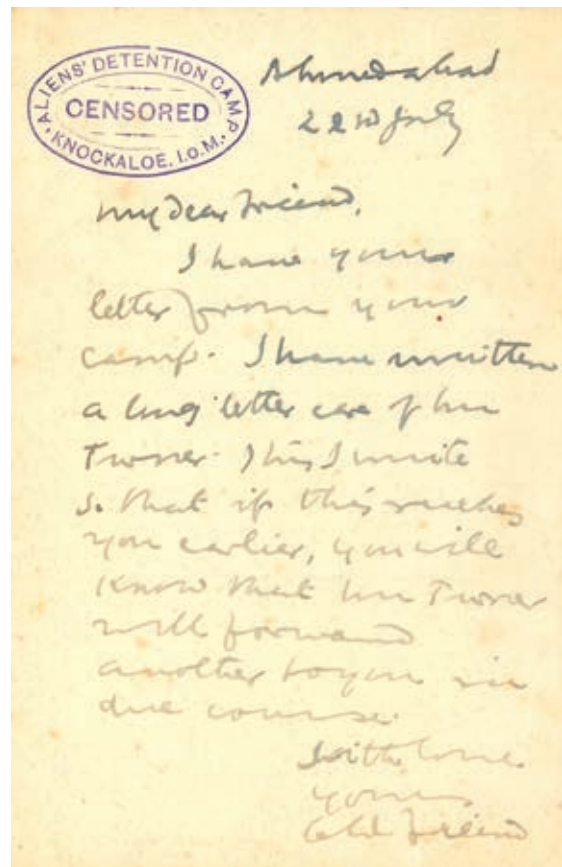 ALIENS' DETENTION CAMP
CENSORED
KNOCKALOE. I.O.M.
Ahmedabad
22nd July
My dear friend,
I have your
letter from your
camp. I have written
a long letter care of Mr
Turner. This I write
so that if this reaches
you earlier, you will
know that Mr Turner
will forward
another to you in
due course.
With love
yours
Old friend